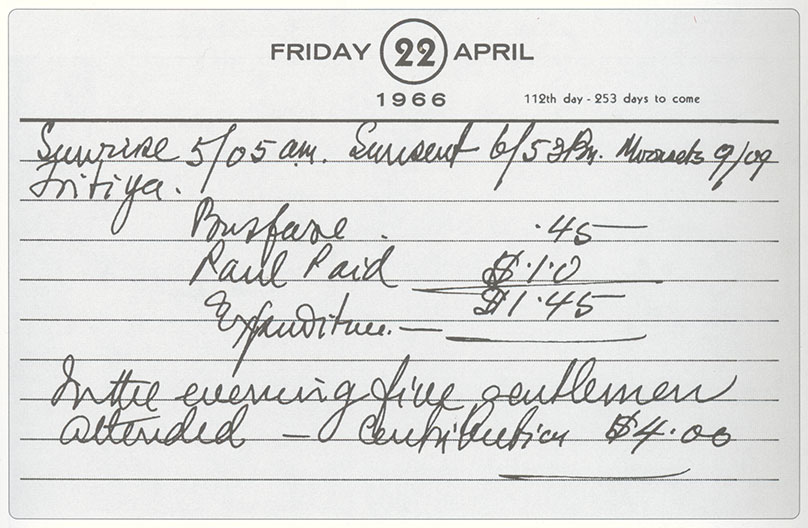 FRIDAY 22 APRIL
1966 112th day - 253 days to come
Sunrise 5/05 am. Sunset 6/53 Pm. Moonsets 9/09
Tritiya.
Busfare . .45
Paul Paid $.1.0
Expenditure. — $1.45
In the evening five gentlemen
attended — Contribution $4.00